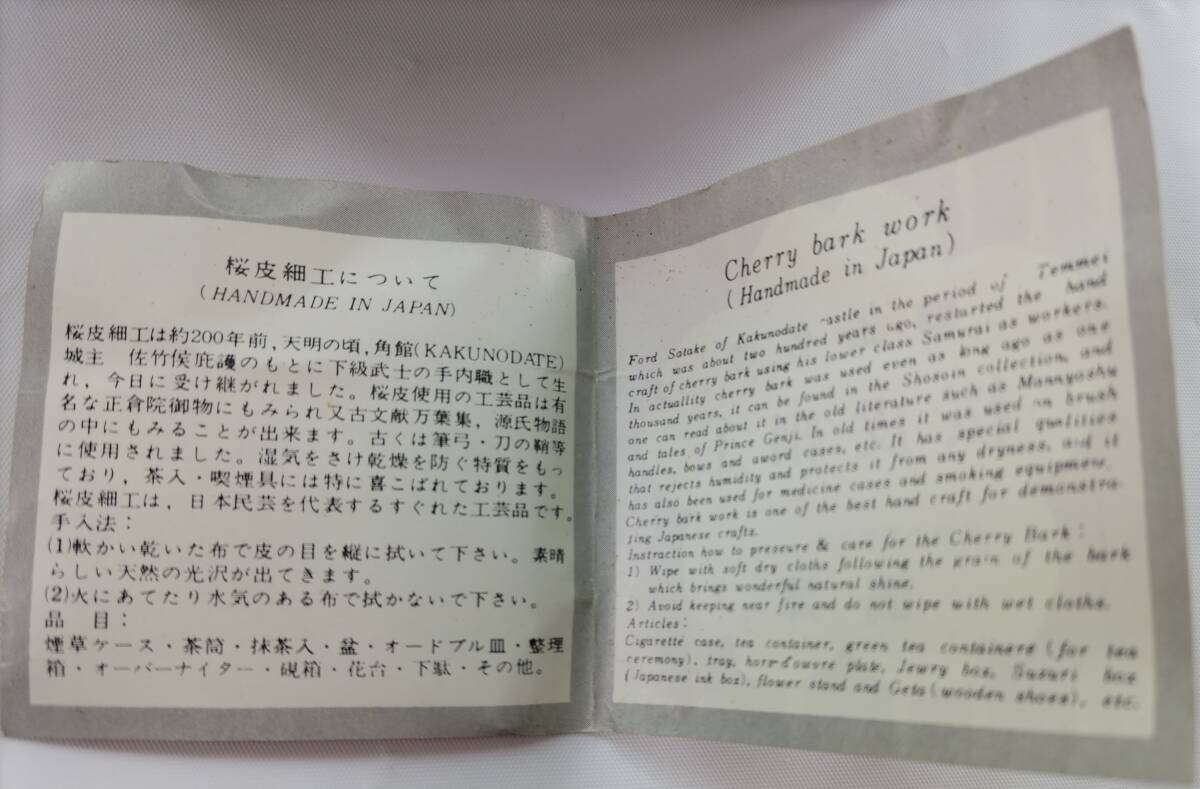 桜皮細工について
(HANDMADE IN JAPAN)
桜皮細工は約200年前,天明の頃,角館(KAKUNODATE)
城主 佐竹侯庇護のもとに下級武士の手内職として生
れ,今日に受け継がれました。桜皮使用の工芸品は有
名な正倉院御物にもみられ又古文献万葉集,源氏物語
の中にもみることが出来ます。古くは筆弓・刀の鞘等
に使用されました。湿気をさけ乾燥を防ぐ特質をもっ
ており,茶入・喫煙具には特に喜こばれております。
桜皮細工は,日本民芸を代表するすぐれた工芸品です。
手入法:
(1)軟かい乾いた布で皮の目を縦に拭いて下さい。素晴
らしい天然の光沢が出てきます。
(2)火にあてたり水気のある布で拭かないで下さい。
品 目:
煙草ケース・茶筒・抹茶入・盆・オードブル皿・整理
箱・オーバーナイター・硯箱・花台・下駄・その他。
Cherry bark work
(Handmade in Japan)
Ford Satake of Kakunodate astle in the period of Temmei
which was about two hundred years ago, restarted the hand
craft of cherry bark using his lower class Samurai as workers.
In actuallity cherry bark was used even as long ago as one
thousand years, it can be found in the Shosoin collection, and
one can read about it in the old literature such as Mannyoshu
and tales of Prince Genji. In old times it was used on brush
handles, bows and award cases, etc. It has special qualities
that rejects humidity and protects it from any dryness, and it
has also been used for medicine cases and smoking equipment.
Cherry bark work is one of the best hand craft for demonstra-
ting Japanese crafts.
Instraction how to preseure & care for the Cherry Bark:
1) Wipe with soft dry cloths following the grain of the bark
which brings wonderful natural shine.
2) Avoid keeping near fire and do not wipe with wet cloths.
Articles:
Cigarette case, tea container, green tea containers (for tea
ceremony), tray, hors-d'owure plate, Jewry box, Suzuri box
(Japanese ink box), flower stand and Geta (wooden shoes), etc.